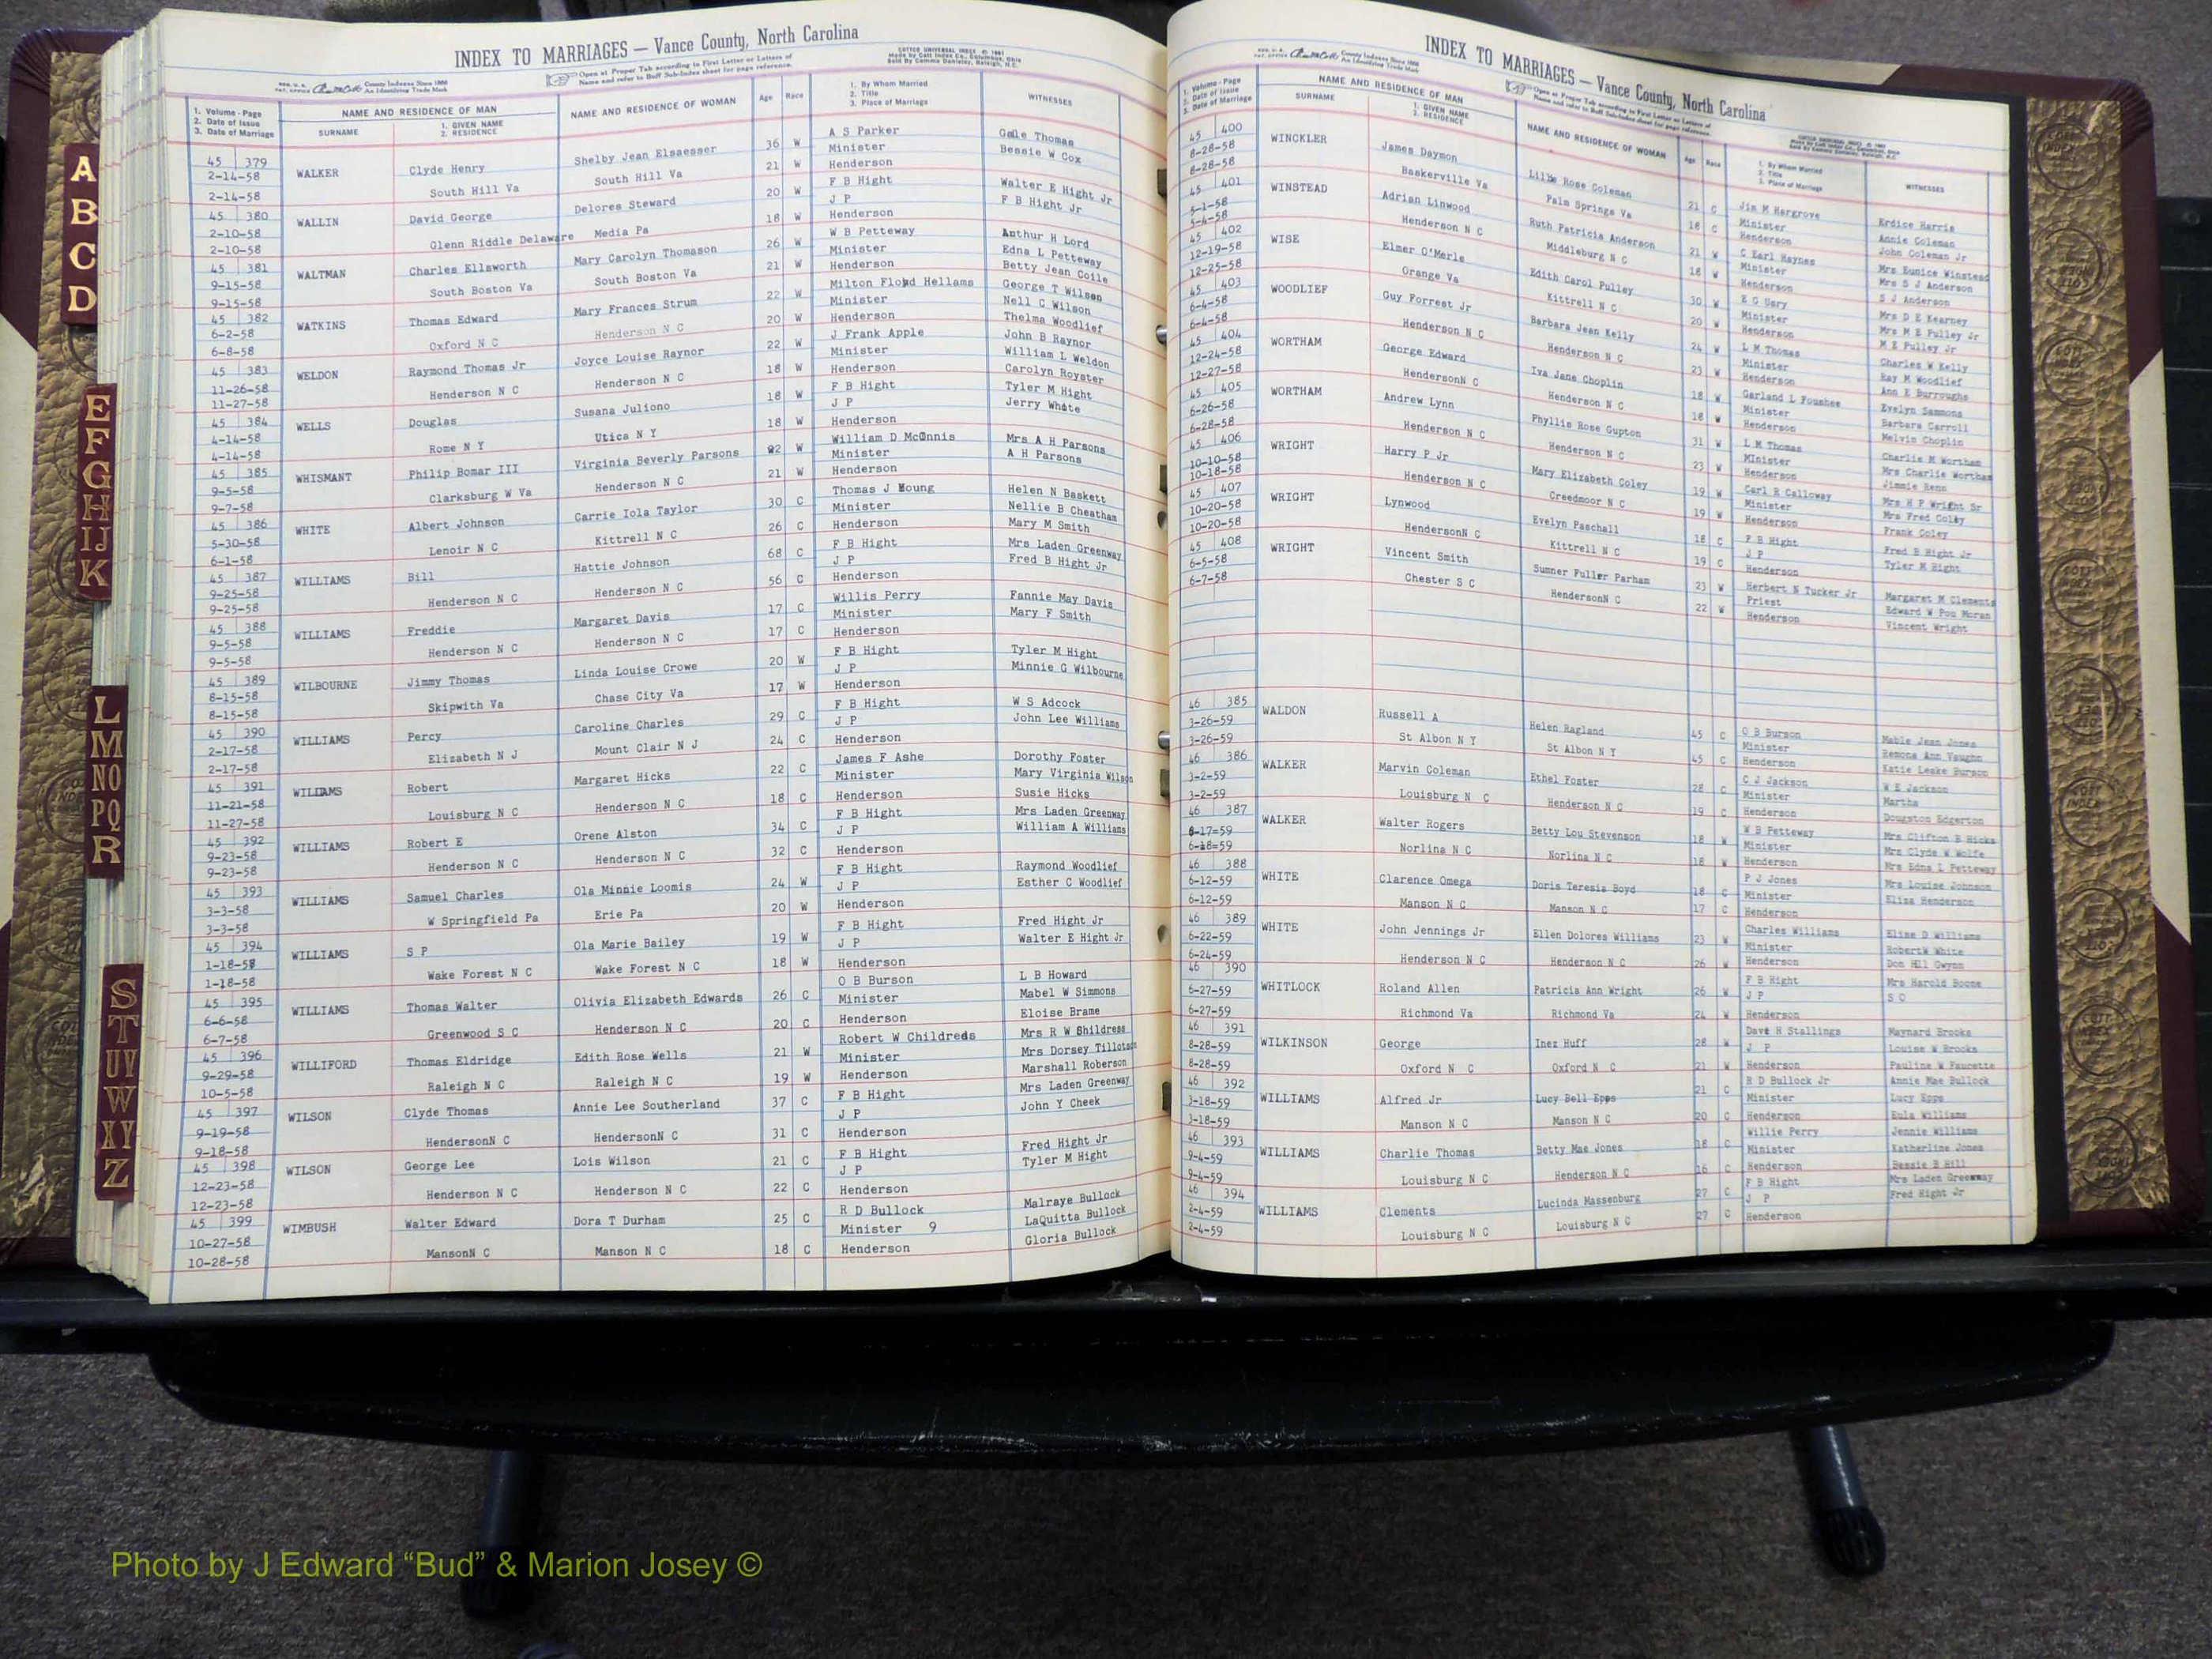 INDEX TO MARRIAGES — Vance County, North Carolina
REG. U. S. PAT. OFFICE County Indexes Since 1888 An Identifying Trade Mark
Open at Proper Tab according to First Letter or Letters of Name and refer to Buff Sub-Index sheet for page reference.
COTTCO UNIVERSAL INDEX © 1961 Made by Cott Index Co., Columbus, Ohio Sold By Comma Danieley, Raleigh, N.C.
1. Volume - Page 2. Date of Issue 3. Date of Marriage
NAME AND RESIDENCE OF MAN
SURNAME 1. GIVEN NAME 2. RESIDENCE
NAME AND RESIDENCE OF WOMAN
Age Race
1. By Whom Married 2. Title 3. Place of Marriage
WITNESSES
45 379 WALKER Clyde Henry Shelby Jean Elsaesser 36 W A S Parker Gale Thomas
2-14-58 South Hill Va South Hill Va 21 W Minister Bessie W Cox
2-14-58 Henderson
45 380 WALLIN David George Delores Steward 20 W F B Hight Walter E Hight Jr
2-10-58 Glenn Riddle Delaware Media Pa 18 W J P F B Hight Jr
2-10-58 Henderson
45 381 WALTMAN Charles Ellsworth Mary Carolyn Thomason 26 W W B Petteway Anthur H Lord
9-15-58 South Boston Va South Boston Va 21 W Minister Edna L Petteway
9-15-58 Henderson Betty Jean Coile
45 382 WATKINS Thomas Edward Mary Frances Strum 22 W Milton Floyd Hellams George T Wilson
6-2-58 Oxford N C Henderson N C 20 W Minister Nell C Wilson
6-8-58 Henderson Thelma Woodlief
45 383 WELDON Raymond Thomas Jr Joyce Louise Raynor 22 W J Frank Apple John B Raynor
11-26-58 Henderson N C Henderson N C 18 W Minister William L Weldon
11-27-58 Henderson Carolyn Royster
45 384 WELLS Douglas Susana Juliono 18 W F B Hight Tyler M Hight
4-14-58 Rome N Y Utica N Y 18 W J P Jerry White
4-14-58 Henderson
45 385 WHISMANT Philip Bomar III Virginia Beverly Parsons 22 W William D McInnis Mrs A H Parsons
9-5-58 Clarksburg W Va Henderson N C 21 W Minister A H Parsons
9-7-58 Henderson
45 386 WHITE Albert Johnson Carrie Iola Taylor 30 C Thomas J Young Helen N Baskett
5-30-58 Lenoir N C Kittrell N C 26 C Minister Nellie B Cheatham
6-1-58 Henderson Mary M Smith
45 387 WILLIAMS Bill Hattie Johnson 68 C F B Hight Mrs Laden Greenway
9-25-58 Henderson N C Henderson N C 56 C J P Fred B Hight Jr
9-25-58 Henderson
45 388 WILLIAMS Freddie Margaret Davis 17 C Willis Perry Fannie May Davis
9-5-58 Henderson N C Henderson N C 17 C Minister Mary F Smith
9-5-58 Henderson
45 389 WILBOURNE Jimmy Thomas Linda Louise Crowe 20 W F B Hight Tyler M Hight
8-15-58 Skipwith Va Chase City Va 17 W J P Minnie G Wilbourne
8-15-58 Henderson
45 390 WILLIAMS Percy Caroline Charles 29 C F B Hight W S Adcock
2-17-58 Elizabeth N J Mount Clair N J 24 C J P John Lee Williams
2-17-58 Henderson
45 391 WILLIAMS Robert Margaret Hicks 22 C James F Ashe Dorothy Foster
11-21-58 Louisburg N C Henderson N C 18 C Minister Mary Virginia Wilson
11-27-58 Henderson Susie Hicks
45 392 WILLIAMS Robert E Orene Alston 34 C F B Hight Mrs Laden Greenway
9-23-58 Henderson N C Henderson N C 32 C J P William A Williams
9-23-58 Henderson
45 393 WILLIAMS Samuel Charles Ola Minnie Loomis 24 W F B Hight Raymond Woodlief
3-3-58 W Springfield Pa Erie Pa 20 W J P Esther C Woodlief
3-3-58 Henderson
45 394 WILLIAMS S P Ola Marie Bailey 19 W F B Hight Fred Hight Jr
1-18-58 Wake Forest N C Wake Forest N C 18 W J P Walter E Hight Jr
1-18-58 Henderson
45 395 WILLIAMS Thomas Walter Olivia Elizabeth Edwards 26 C O B Burson L B Howard
6-6-58 Greenwood S C Henderson N C 20 C Minister Mabel W Simmons
6-7-58 Henderson Eloise Brame
45 396 WILLIFORD Thomas Eldridge Edith Rose Wells 21 W Robert W Childreds Mrs R W Shildress
9-29-58 Raleigh N C Raleigh N C 19 W Minister Mrs Dorsey Tillotson
10-5-58 Henderson Marshall Roberson
45 397 WILSON Clyde Thomas Annie Lee Southerland 37 C F B Hight Mrs Laden Greenway
9-19-58 HendersonN C HendersonN C 31 C J P John Y Cheek
9-18-58 Henderson
45 398 WILSON George Lee Lois Wilson 21 C F B Hight Fred Hight Jr
12-23-58 Henderson N C Henderson N C 22 C J P Tyler M Hight
12-23-58 Henderson
45 399 WIMBUSH Walter Edward Dora T Durham 25 C R D Bullock Malraye Bullock
10-27-58 MansonN C Manson N C 18 C Minister 9 LaQuitta Bullock
10-28-58 Henderson Gloria Bullock
INDEX TO MARRIAGES — Vance County, North Carolina
REG. U. S. PAT. OFFICE County Indexes Since 1888 An Identifying Trade Mark
Open at Proper Tab according to First Letter or Letters of Name and refer to Buff Sub-Index sheet for page reference.
1. Volume - Page 2. Date of Issue 3. Date of Marriage
NAME AND RESIDENCE OF MAN
SURNAME 1. GIVEN NAME 2. RESIDENCE
NAME AND RESIDENCE OF WOMAN
Age Race
1. By Whom Married 2. Title 3. Place of Marriage
WITNESSES
45 400 WINCKLER James Daymon Lillie Rose Coleman 21 C Jim M Hargrove Erdice Harris
8-28-58 Baskerville Va Palm Springs Va 18 C Minister Annie Coleman
8-28-58 Henderson John Coleman Jr
45 401 WINSTEAD Adrian Linwood Ruth Patricia Anderson 21 W C Earl Haynes Mrs Eunice Winstead
5-1-58 Henderson N C Middleburg N C 18 W Minister Mrs S J Anderson
5-4-58 Henderson S J Anderson
45 402 WISE Elmer O'Merle Edith Carol Pulley 30 W E G Usry Mrs D E Kearney
12-19-58 Orange Va Kittrell N C 20 W Minister Mrs M E Pulley Jr
12-25-58 Henderson M E Pulley Jr
45 403 WOODLIEF Guy Forrest Jr Barbara Jean Kelly 24 W L M Thomas Charles W Kelly
6-4-58 Henderson N C Henderson N C 23 W Minister Ray M Woodlief
6-4-58 Henderson Ann E Burroughs
45 404 WORTHAM George Edward Iva Jane Choplin 18 W Garland L Foushee Evelyn Sammons
12-24-58 HendersonN C Henderson N C 18 W Minister Barbara Carroll
12-27-58 Henderson Melvin Choplin
45 405 WORTHAM Andrew Lynn Phyllis Rose Gupton 31 W L M Thomas Charlie M Wortham
6-26-58 Henderson N C Henderson N C 23 W MInister Mrs Charlie Wortham
6-28-58 Henderson Jimmie Renn
45 406 WRIGHT Harry P Jr Mary Elizabeth Coley 19 W Carl R Calloway Mrs H P Wright Sr
10-10-58 Henderson N C Creedmoor N C 19 W Minister Mrs Fred Coley
10-18-58 Henderson Frank Coley
45 407 WRIGHT Lynwood Evelyn Paschall 18 C F B Hight Fred B Hight Jr
10-20-58 HendersonN C Kittrell N C 19 C J P Tyler M Hight
10-20-58 Henderson
45 408 WRIGHT Vincent Smith Sumner Fuller Parham 23 W Herbert N Tucker Jr Margaret M Clements
6-5-58 Chester S C HendersonN C 22 W Priest Edward W Pou Moran
6-7-58 Henderson Vincent Wright
46 385 WALDON Russell A Helen Ragland 45 C O B Burson Mable Jean Jones
3-26-59 St Albon N Y St Albon N Y 45 C Minister Remona Ann Vaughn
3-26-59 Henderson Katie Leake Burson
46 386 WALKER Marvin Coleman Ethel Foster 28 C C J Jackson W E Jackson
3-2-59 Louisburg N C Henderson N C 19 C Minister Martha
3-2-59 Henderson Dougston Edgerton
46 387 WALKER Walter Rogers Betty Lou Stevenson 18 W W B Petteway Mrs Clifton B Hicks
6-17=59 Norlina N C Norlina N C 18 W Minister Mrs Clyde W Wolfe
6-18=59 Henderson Mrs Edna L Petteway
46 388 WHITE Clarence Omega Doris Teresia Boyd 18 C P J Jones Mrs Louise Johnson
6-12-59 Manson N C Manson N C 17 C Minister Eliza Henderson
6-12-59 Henderson
46 389 WHITE John Jennings Jr Ellen Dolores Williams 23 W Charles Williams Elise D Williams
6-22-59 Henderson N C Henderson N C 26 W Minister RobertW White
6-24-59 Henderson Don Hll Gwynn
46 390 WHITLOCK Roland Allen Patricia Ann Wright 26 W F B Hight Mrs Harold Boone
6-27-59 Richmond Va Richmond Va 24 W J P S O
6-27-59 Henderson
46 391 WILKINSON George Inez Huff 28 W Dave H Stallings Maynard Brooks
8-28-59 Oxford N C Oxford N C 21 W J P Louise W Brooks
8-28-59 Henderson Pauline W Faucette
46 392 WILLIAMS Alfred Jr Lucy Bell Epps 21 C R D Bullock Jr Annie Mae Bullock
3-18-59 Manson N C Manson N C 20 C Minister Lucy Epps
3-18-59 Henderson Eula Williams
46 393 WILLIAMS Charlie Thomas Betty Mae Jones 18 C Willie Perry Jennie Williams
9-4-59 Louisburg N C Henderson N C 16 C Minister Katherline Jones
9-4-59 Henderson Bessie B Hill
46 394 WILLIAMS Clements Lucinda Massenburg 27 C F B Hight Mrs Laden Greenway
2-4-59 Louisburg N C Louisburg N C 27 C J P Fred Hight Jr
2-4-59 Henderson
A
B
C
D
E
F
G
H
IJ
K
L
M
NO
PQ
R
S
T
UV
W
XY
Z
Photo by J Edward “Bud” & Marion Josey ©